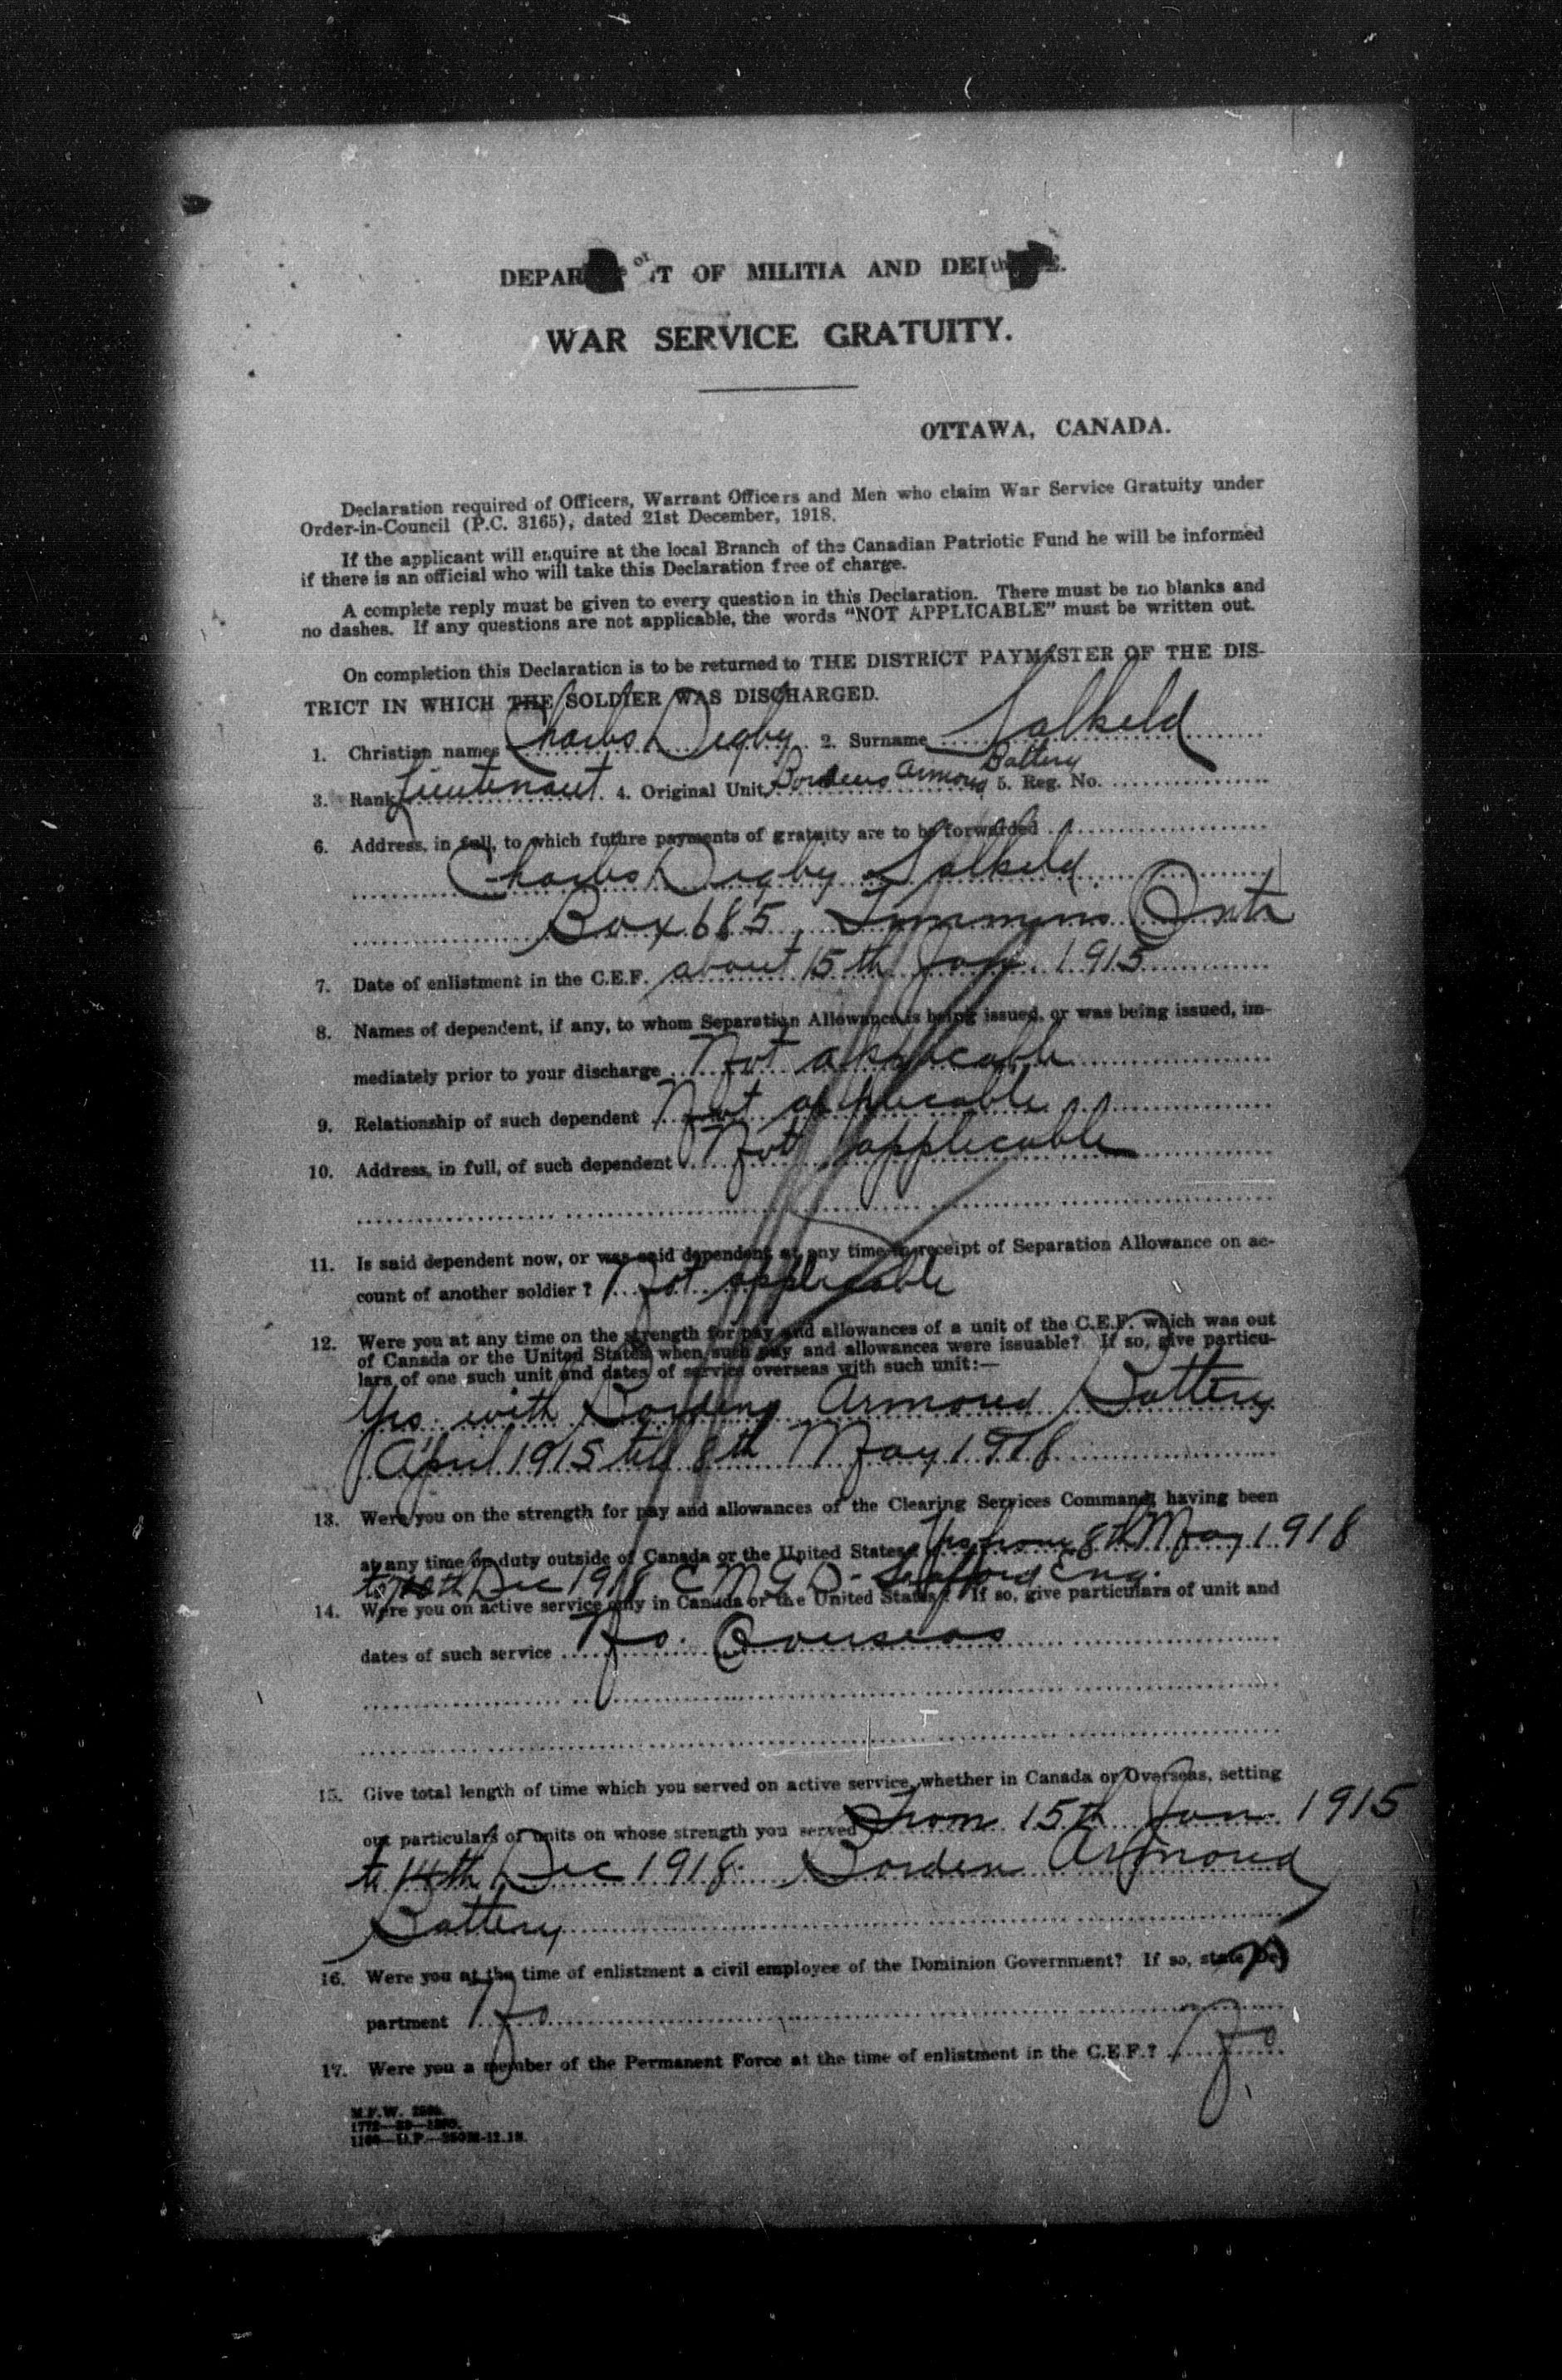 DEPAR T OF MILITIA AND DE E.
WAR SERVICE GRATUITY.
OTTAWA, CANADA.
Declaration required of Officers, Warrant Officers and Men who claim War Service Gratuity under
Order-in-Council (P.C. 3165), dated 21st December, 1918.
If the applicant will enquire at the local Branch of the Canadian Patriotic Fund he will be informed
if there is an official who will take this Declaration free of charge.
A complete reply must be given to every question in this Declaration. There must be no blanks and
no dashes. If any questions are not applicable, the words "NOT APPLICABLE" must be written out.
On completion this Declaration is to be returned to THE DISTRICT PAYMASTER OF THE DIS-
TRICT IN WHICH THE SOLDIER WAS DISCHARGED.
1. Christian names Charles Digby 2. Surname Salkeld
3. Rank Lieutenant 4. Original Unit Bordens Armord Battery 5. Reg. No.
6. Address, in full, to which future payments of gratuity are to be forwarded
Charles Digby Salkeld
Box 685, Timmins Ont
7. Date of enlistment in the C.E.F. about 15th Jan. 1915
8. Names of dependent, if any, to whom Separation Allowance is being issued, or was being issued, im-
mediately prior to your discharge Not applicable
9. Relationship of such dependent Not applicable
10. Address, in full, of such dependent Not applicable
11. Is said dependent now, or was said dependent at any time in receipt of Separation Allowance on ac-
count of another soldier? Not applicable
12. Were you at any time on the strength for pay and allowances of a unit of the C.E.F. which was out
of Canada or the United States when such pay and allowances were issuable? If so, give particu-
lars of one such unit and dates of service overseas with such unit:—
Yes with Bordens Armored Battery
April 1915 till 8th May 1918
13. Were you on the strength for pay and allowances of the Clearing Services Command, having been
at any time on duty outside of Canada or the United States? Yes from 8th May 1918
to 14th Dec 1918 C M G D - Seaford Eng.
14. Were you on active service only in Canada or the United States? If so, give particulars of unit and
dates of such service No. Overseas
15. Give total length of time which you served on active service, whether in Canada or Overseas, setting
out particulars of units on whose strength you served From 15th Jan. 1915
to 14th Dec 1918. Borden Armored
Battery
16. Were you at the time of enlistment a civil employee of the Dominion Government? If so, state De-
partment No
17. Were you a member of the Permanent Force at the time of enlistment in the C.E.F.? No
M.F.W.